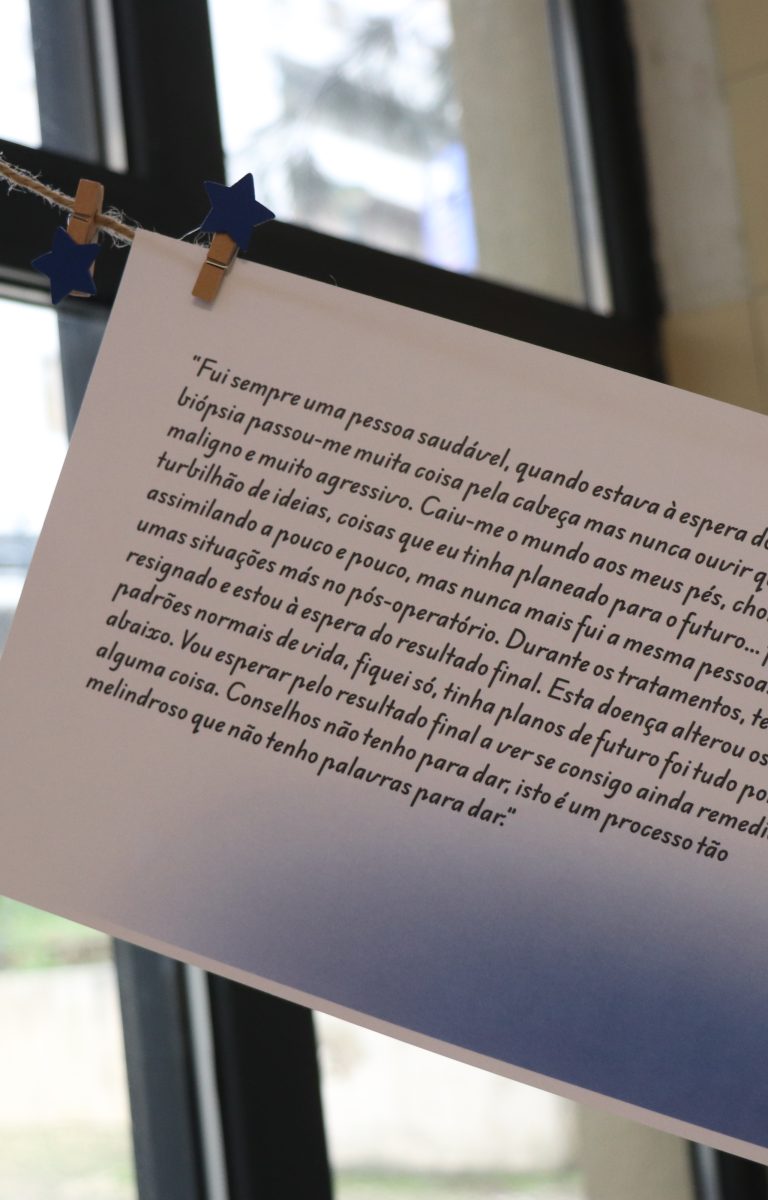 "Fui sempre uma pessoa saudável, quando estava à espera d
biópsia passou-me muita coisa pela cabeça mas nunca ouvir q
maligno e muito agressivo. Caiu-me o mundo aos meus pés, cho
turbilhão de ideias, coisas que eu tinha planeado para o futuro...
assimilando a pouco e pouco, mas nunca mais fui a mesma pessoa.
umas situações más no pós-operatório. Durante os tratamentos, te
resignado e estou à espera do resultado final. Esta doença alterou os
padrões normais de vida, fiquei só, tinha planos de futuro foi tudo po
abaixo. Vou esperar pelo resultado final a ver se consigo ainda remedi
alguma coisa. Conselhos não tenho para dar, isto é um processo tão
melindroso que não tenho palavras para dar."